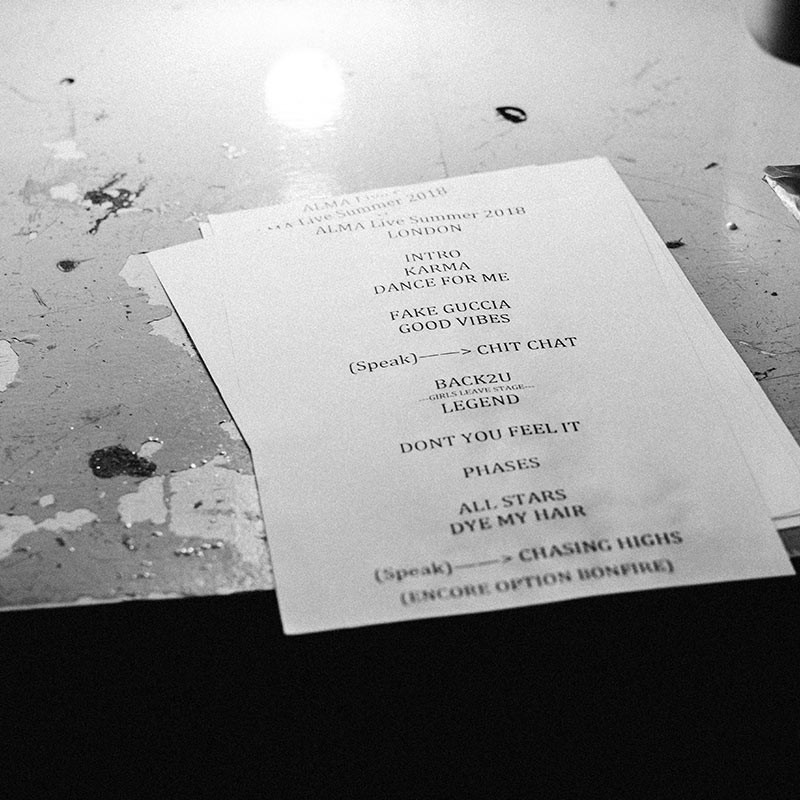 ALMA Live
MA Live Summer 2018
ALMA Live Summer 2018
LONDON
INTRO
KARMA
DANCE FOR ME
FAKE GUCCIA
GOOD VIBES
(Speak)——> CHIT CHAT
BACK2U
---GIRLS LEAVE STAGE---
LEGEND
DONT YOU FEEL IT
PHASES
ALL STARS
DYE MY HAIR
(Speak)——> CHASING HIGHS
(ENCORE OPTION BONFIRE)